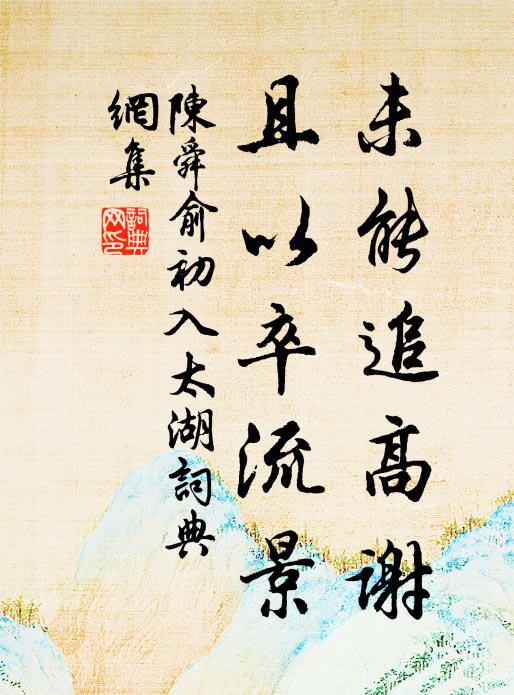 未能追高謝
且以卒流景
陳舜俞初入太湖詞典
網集
詞典
网印